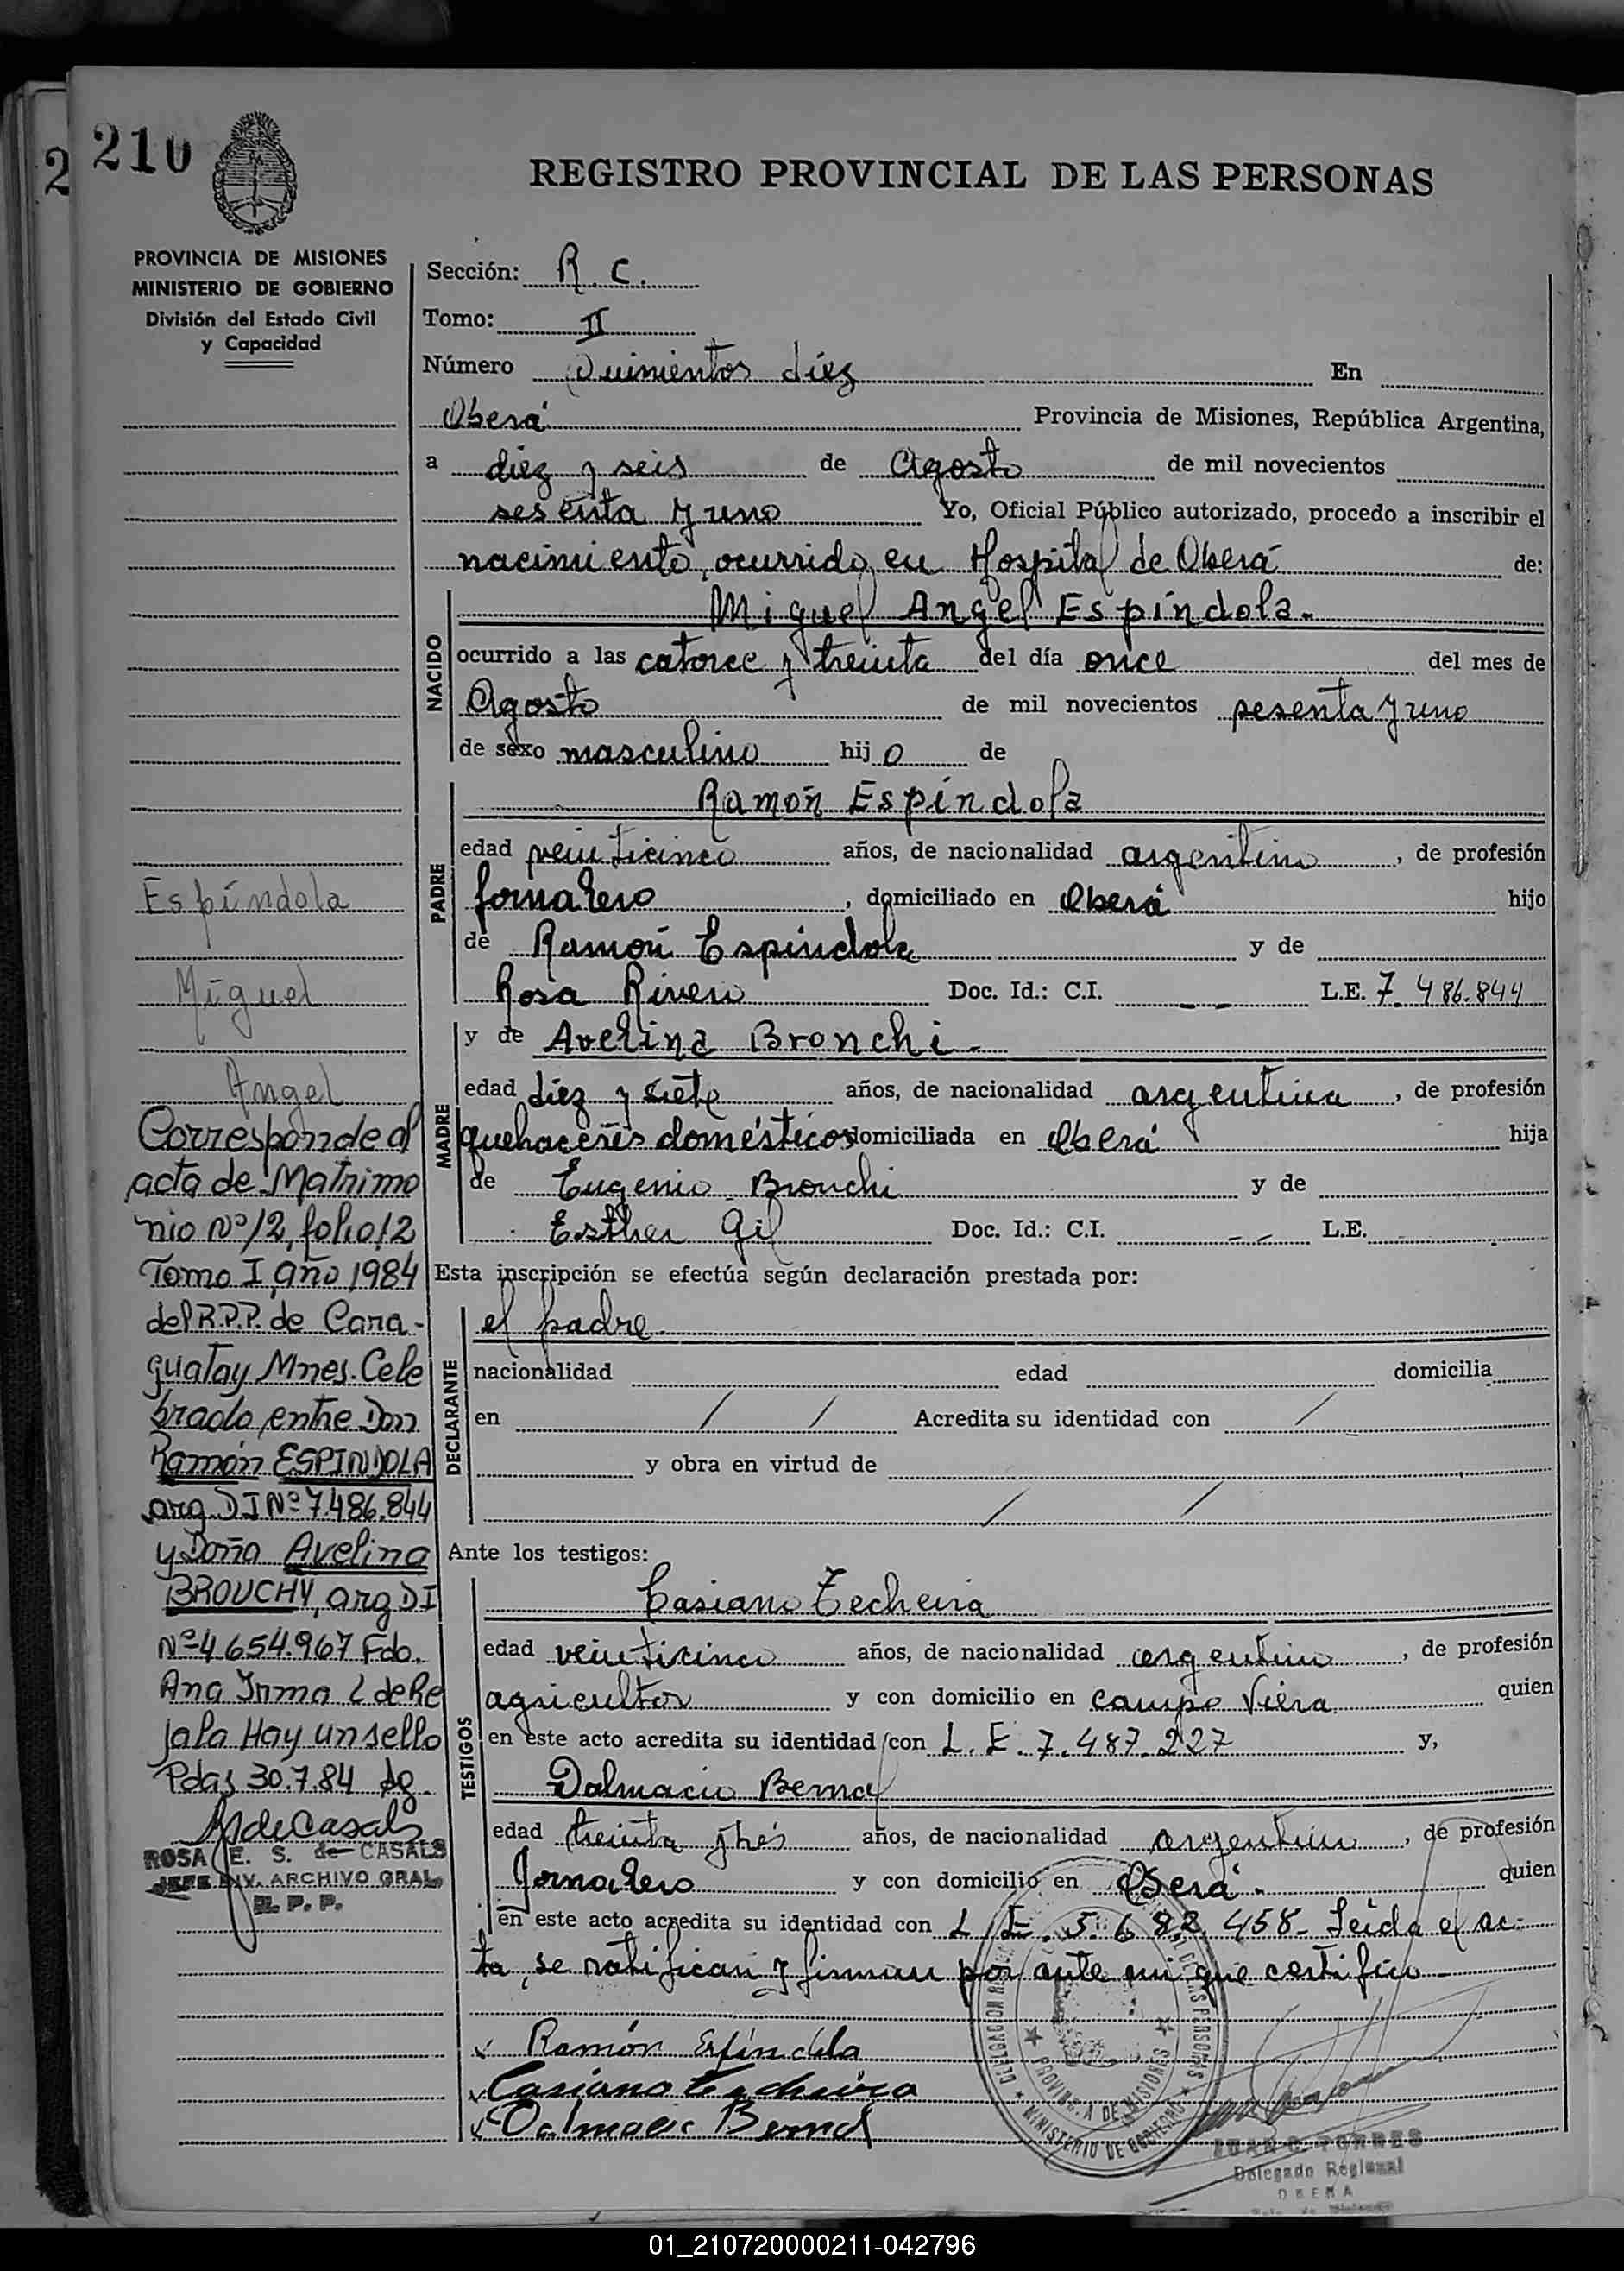 2
210
REGISTRO PROVINCIAL DE LAS PERSONAS
PROVINCIA DE MISIONES
MINISTERIO DE GOBIERNO
División del Estado Civil
y Capacidad
Sección: R. C.
Tomo: II
Número Quinientos diez En
Oberá Provincia de Misiones, República Argentina,
a diez y seis de Agosto de mil novecientos
sesenta y uno Yo, Oficial Público autorizado, procedo a inscribir el
nacimiento, ocurrido en Hospital de Oberá de:
NACIDO
Miguel Angel Espíndola.
ocurrido a las catorce y treinta del día once del mes de
Agosto de mil novecientos sesenta y uno
de sexo masculino hijo de
PADRE
Ramón Espíndola
edad veinticinco años, de nacionalidad argentino, de profesión
Jornalero, domiciliado en Oberá hijo
de Ramón Espíndola y de
Rosa Rivero Doc. Id.: C.I. - - L.E. 7.486.844
MADRE
y de Avelina Bronchi.-
edad diez y siete años, de nacionalidad argentina, de profesión
quehaceres domésticos domiciliada en Oberá hija
de Eugenio Bronchi y de
Esther Gil Doc. Id.: C.I. - - L.E.
Esta inscripción se efectúa según declaración prestada por:
DECLARANTE
el padre
nacionalidad edad domicilia
en / / Acredita su identidad con /
y obra en virtud de
/ /
Ante los testigos:
TESTIGOS
Casiano Techeira
edad veinticinco años, de nacionalidad argentino, de profesión
agricultor y con domicilio en Campo Viera quien
en este acto acredita su identidad con L.E. 7.487.227 y,
Dalmacio Bernal
edad treinta y tres años, de nacionalidad argentino, de profesión
Jornalero y con domicilio en Oberá. quien
en este acto acredita su identidad con L.E. 5.682.458- Leída el ac-
ta, se ratifican y firman por ante mi que certifico
Ramón Espíndola
Casiano Techeira
Dalmacio Bernal
Espíndola
Miguel
Angel
Corresponde al
acta de Matrimo
nio Nº 12, folio 12
Tomo I, año 1984
del R.P.P. de Cara-
guatay Mnes. Cele
brado entre Don
Ramón ESPINDOLA
arg. DI Nº 7.486.844
y Doña Avelina
BROUCHY, arg DI
Nº 4654.967 Fdo.
Ana Irma L de Re
jala Hay un sello
Pdas 30.7.84
ROSA E. S. de CASALS
JEFE DIV. ARCHIVO GRAL.
R. P. P.
PROVINCIA DE MISIONES
MINISTERIO DE GOBIERNO
JUAN C. TORRES
Delegado Regional
OBERA
01_210720000211-042796